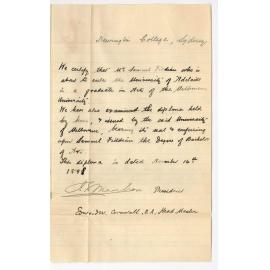 Newington College, Sydney
We certify that Mr. Samuel Fiddian who is
about to enter the University of Adelaide
is a graduate in Arts of the Melbourne
University
We have also examined the diploma held
by him, & issued by the said University
of Melbourne, bearing its seal & conferring
upon Samuel Fiddian the Degree of Bachelor
of Arts.
This diploma is dated 16th
President
B.A. Head Master